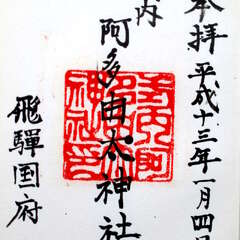 奉拝 平成十三年一月四日
内
阿多由太神社
飛驒国府